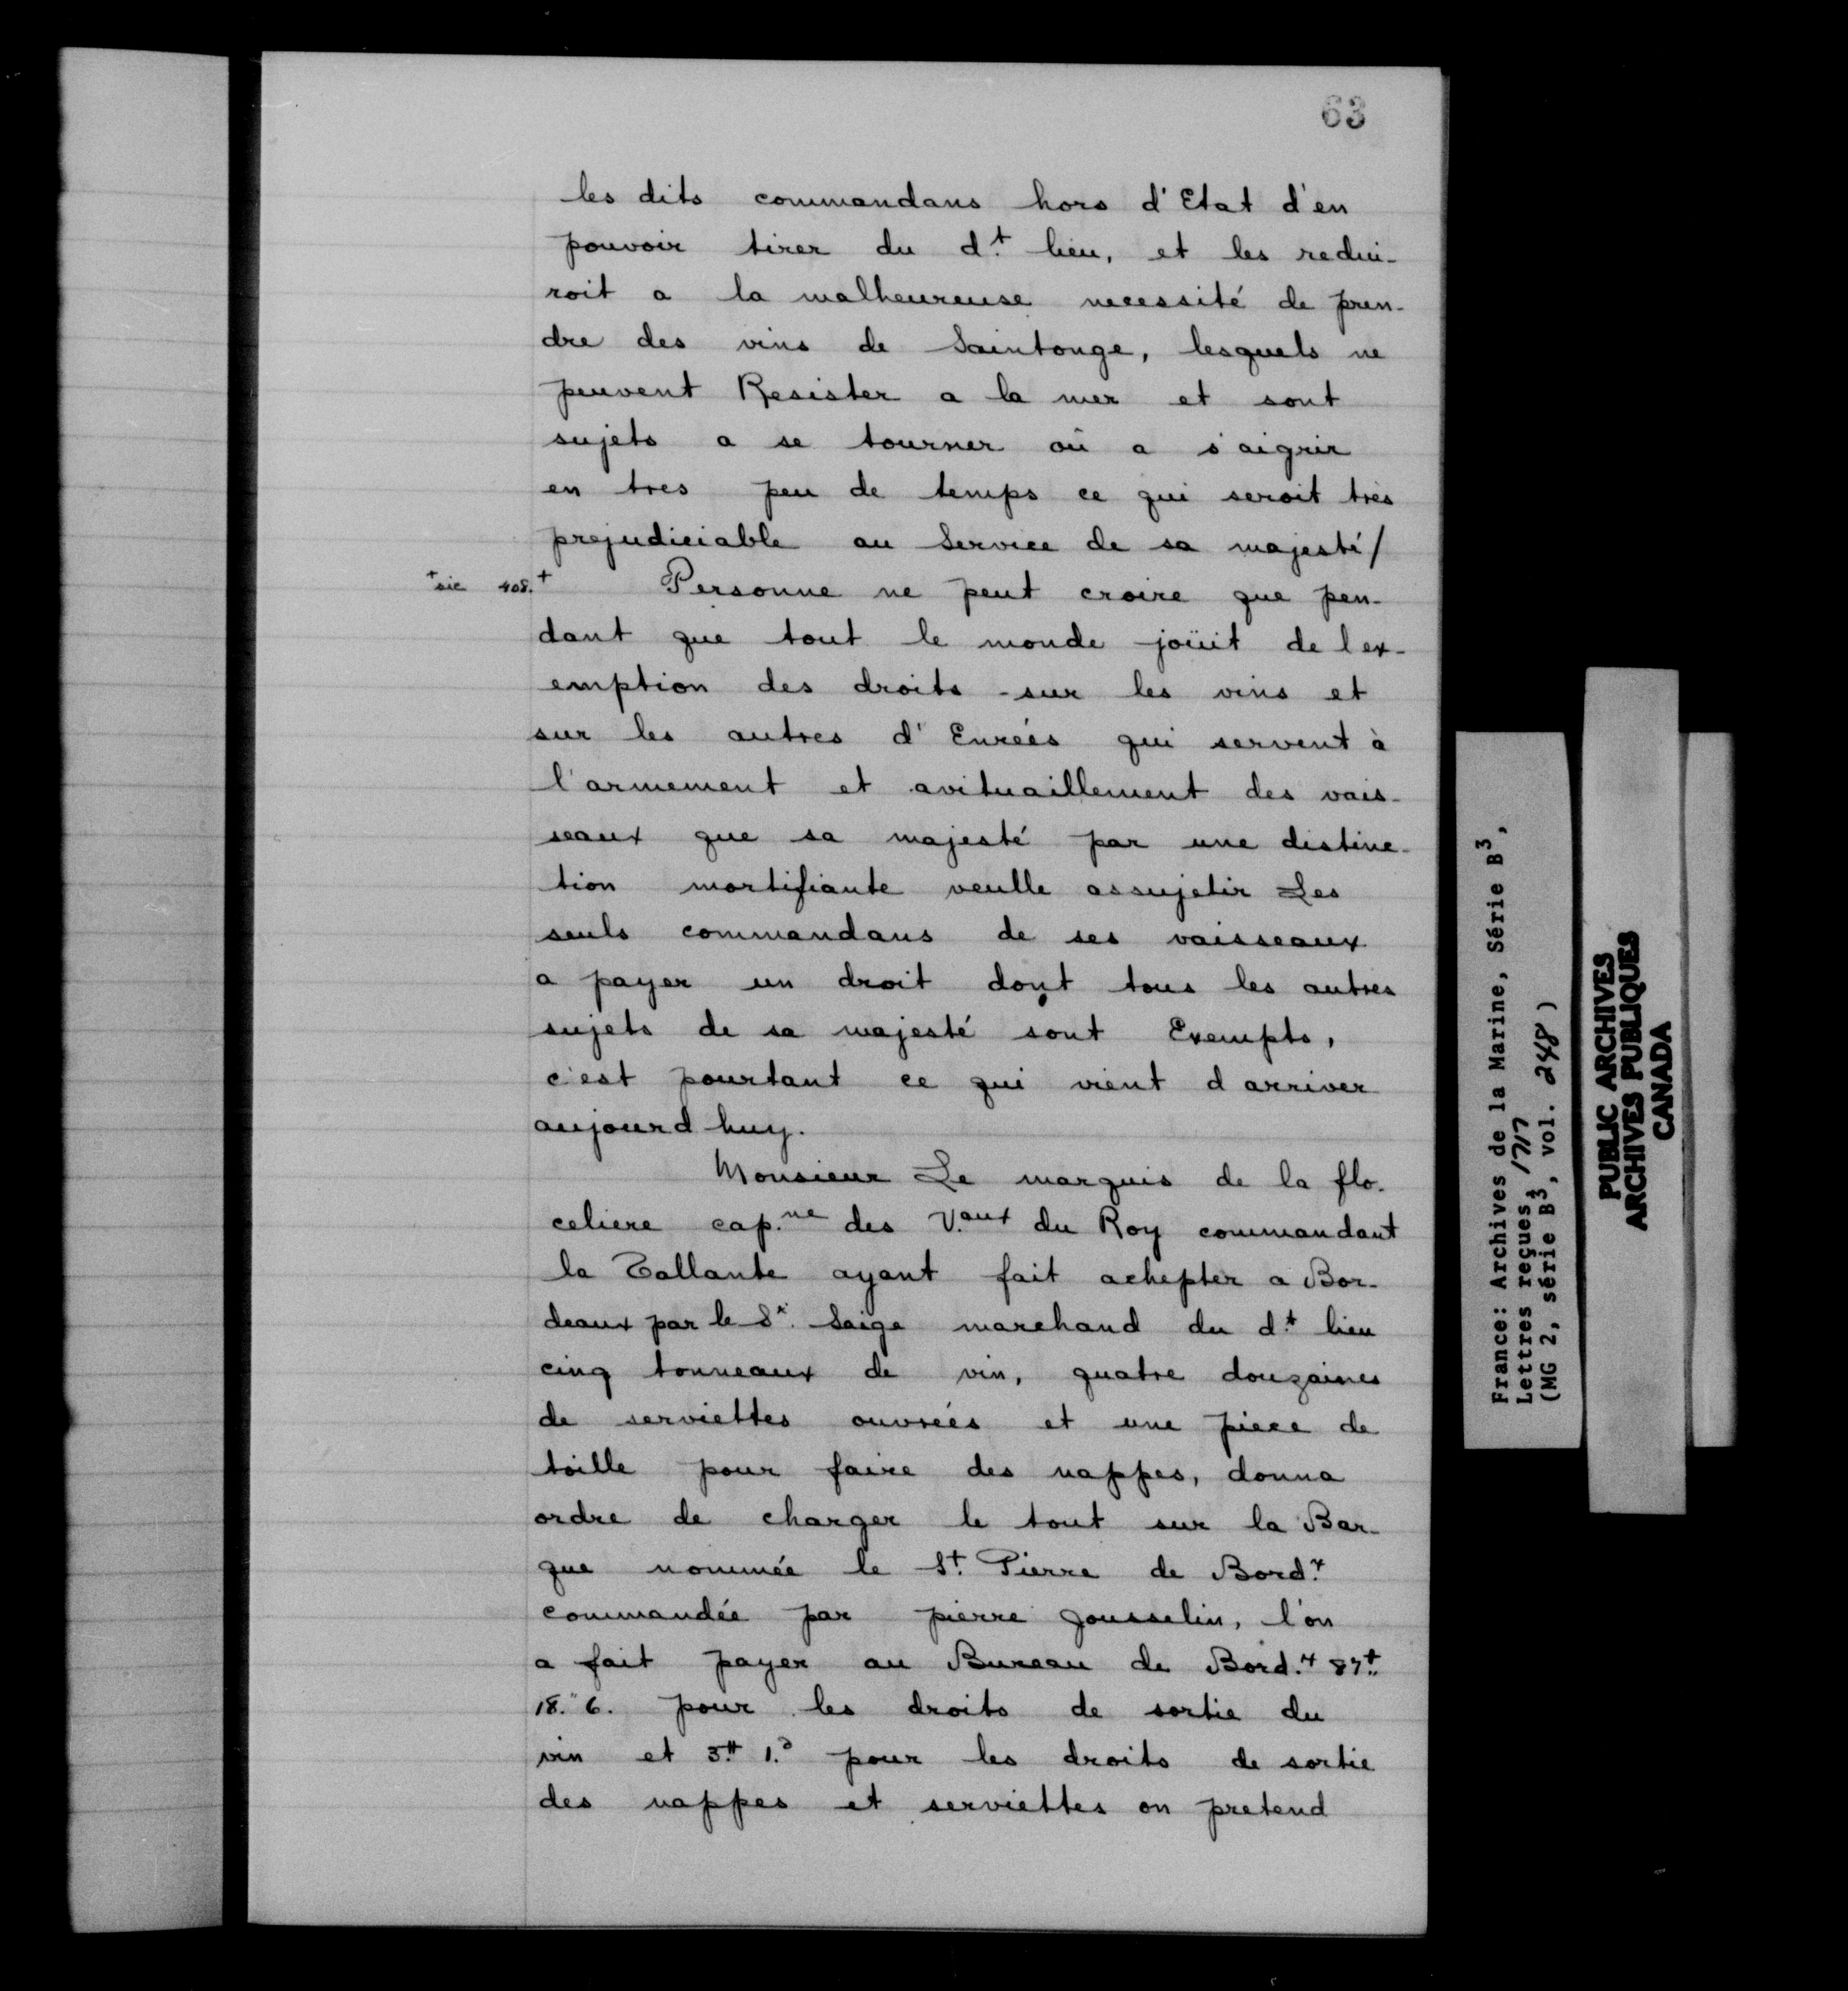 63
les dits commandans hors d'Etat d'en
pouvoir tirer du d.t lieu, et les redui-
roit a la malheureuse necessité de pren-
dre des vins de Saintonge, lesquels ne
peuvent Resister a la mer et sont
sujets a se tourner où a s'aigrir
en tres peu de temps ce qui seroit très
prejudiciable au Service de sa majesté/
+sic 408.+ Personne ne peut croire que pen-
dant que tout le monde joüit de l'ex-
emption des droits sur les vins et
sur les autres d'Enreés qui servent à
l'armement et avituaillement des vais-
seaux que sa majesté par une distinc-
tion mortifiante veulle assujetir Les
seuls commandans de ses vaisseaux
a payer un droit dont tous les autres
sujets de sa majesté sont Exempts,
c'est pourtant ce qui vient d arriver
aujourd huy.
Monsieur Le marquis de la flo-
celiere cap.ne des V.aux du Roy commandant
la Tallante ayant fait achepter a Bor-
deaux par le Sr. Saige marchand du d.t lieu
cinq tonneaux de vin, quatre douzaines
de serviettes ouvreés et une piece de
toille pour faire des nappes, donna
ordre de charger le tout sur la Bar-
que nommée le St. Pierre de Bord.x
commandée par pierre gousselin, l'on
a fait payer au Bureau de Bord.x 87tt
18.s 6. pour les droits de sortie du
vin et 3.tt 1.s pour les droits de sortie
des nappes et serviettes on pretend
France: Archives de la Marine, Série B3,
Lettres reçues, 1717
(MG 2, série B3, vol. 248)
PUBLIC ARCHIVES
ARCHIVES PUBLIQUES
CANADA